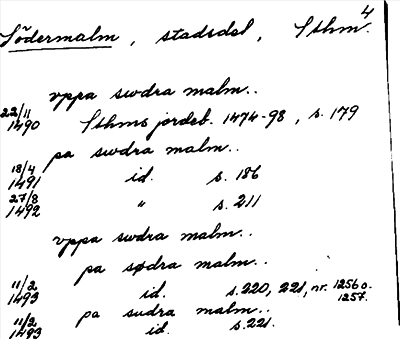 4
Södermalm, stadsdel, Sthm.
vppa swdra malm..
22/11 1490 Sthms jordeb. 1474-98, s. 179
pa swdra malm..
18/4 1491 id. s. 186
27/8 1492 " s. 211
vppa swdra malm..
pa sødra malm..
11/2 1493 id. s. 220, 221, nr. 1256 o. 1257.
pa sudra malm..
11/2 1493 id. s. 221.